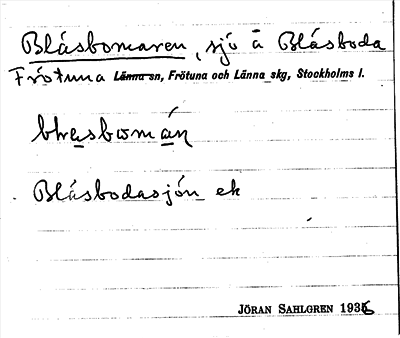 Blåsbomaren, sjö å Blåsboda
Frötuna Länna sn, Frötuna och Länna skg, Stockholms l.
blåsbomán
Blåsbodasjön ek
JÖRAN SAHLGREN 1936